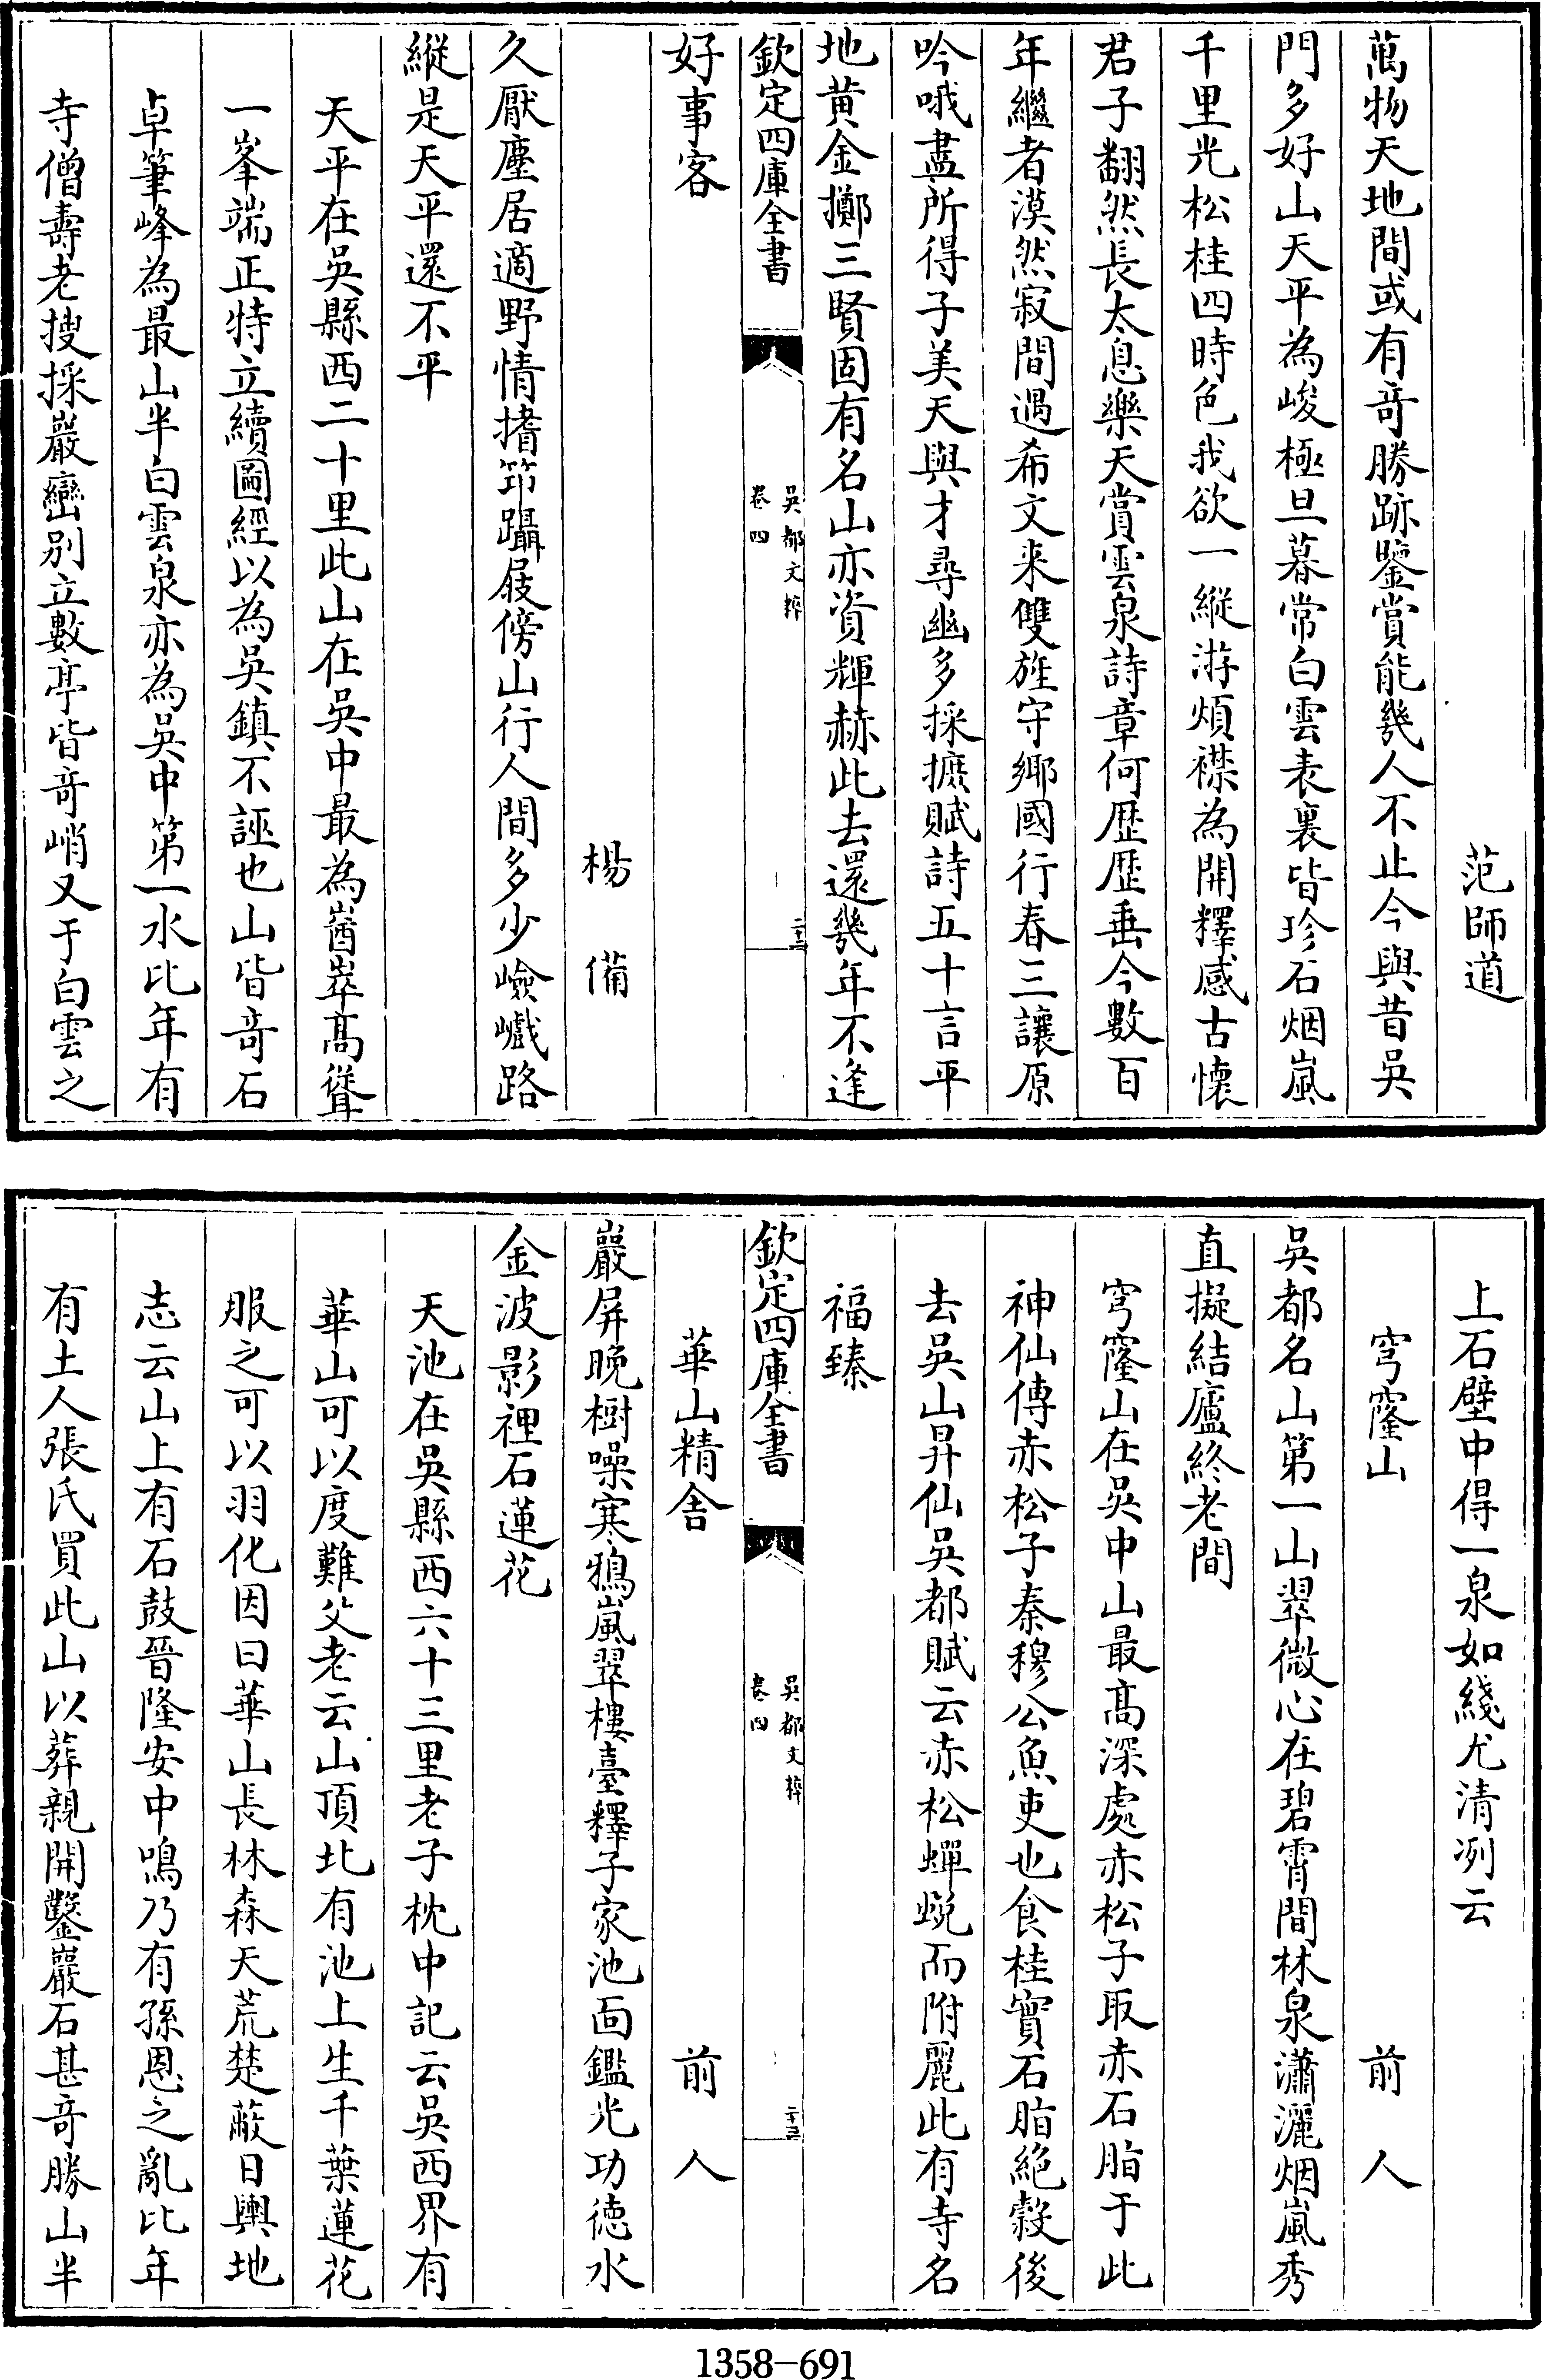 范師道
萬物天地間或有奇勝跡鑒賞能幾人不止今與昔吳
門多好山天平為峻極旦暮常白雲表裏皆珍石烟嵐
千里光松桂四時色我欲一縱游煩襟為開釋感古懷
君子翻然長太息樂天賞雲泉詩章何歷歷垂今數百
年繼者漠然寂間遇希文来雙旌守鄉國行春三讓原
吟哦盡所得子美天與才尋幽多採摭賦詩五十言平
地黄金擲三賢固有名山亦資輝赫此去還幾年不逢
欽定四庫全書
吳都文粹
卷四
二十二
好事客
楊備
久厭塵居適野情搘筇躡屐傍山行人間多少嶮巇路
縱是天平還不平
天平在吳縣西二十里此山在吳中最為崷崒髙聳
一峯端正特立續圖經以為吳鎮不誣也山皆奇石
卓筆峰為最山半白雲泉亦為吳中第一水比年有
寺僧壽老搜採巖巒别立數亭皆奇峭又于白雲之
上石壁中得一泉如綫尤清冽云
穹窿山　前人
吳都名山第一山翠微心在碧霄間林泉瀟灑烟嵐秀
直擬結廬終老間
穹窿山在吳中山最髙深處赤松子取赤石脂于此
神仙傳赤松子秦穆公魚吏也食桂實石脂絶穀後
去吳山昇仙吳都賦云赤松蟬蛻而附麗此有寺名
福臻
欽定四庫全書
吳都文粹
卷四
二十三
華山精舍　前人
巖屏晚樹噪寒鴉嵐翠樓臺釋子家池面鑑光功徳水
金波影裡石蓮花
天池在吳縣西六十三里老子枕中記云吳西界有
華山可以度難父老云山頂北有池上生千葉蓮花
服之可以羽化因曰華山長林森天荒楚蔽日輿地
志云山上有石鼓晉隆安中鳴乃有孫恩之亂比年
有土人張氏買此山以葬親開鑿巖石甚奇勝山半
1358-691